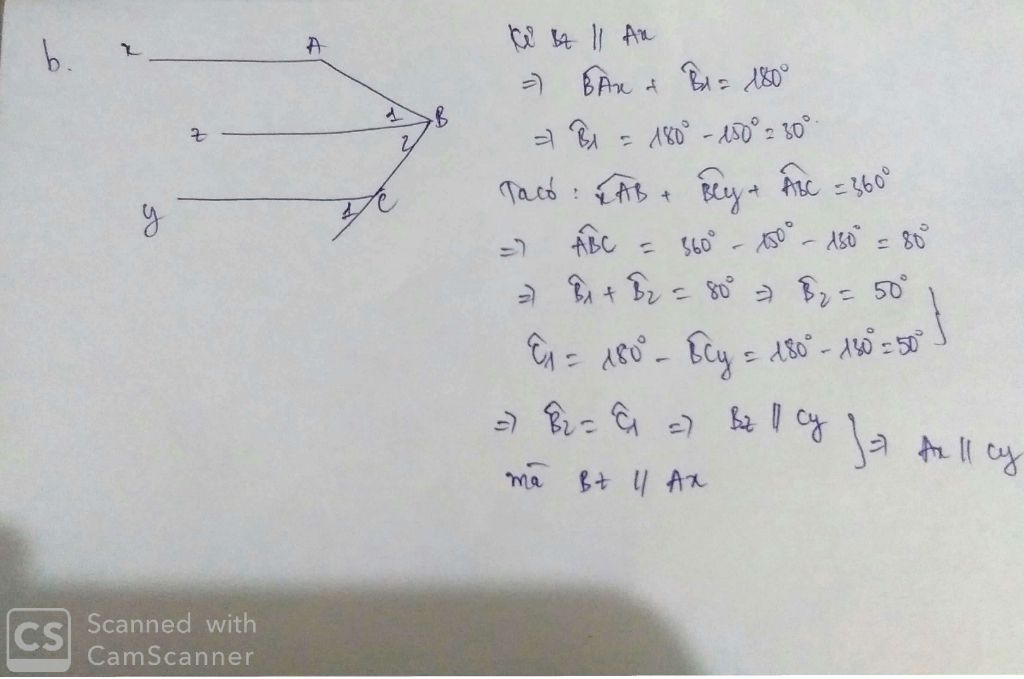 b.
x A
1 B
z 2
y 1 C
Kẻ Bz // Ax
=> BAx + B1 = 180°
=> B1 = 180° - 150° = 30°
Ta có : xAB + BCy + ABC = 360°
=> ABC = 360° - 150° - 130° = 80°
=> B1 + B2 = 80° => B2 = 50°
C1 = 180° - BCy = 180° - 130° = 50°
=> B2 = C1 => Bz // Cy
mà Bz // Ax
=> Ax // Cy
CS Scanned with
CamScanner